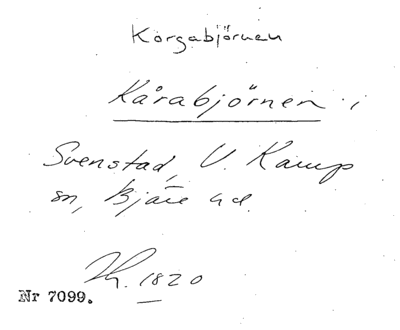 Korgabjörnen
Kårabjörnen i
Svenstad, V. Karup
sn, Bjäre hd.
1820
Nr 7099.